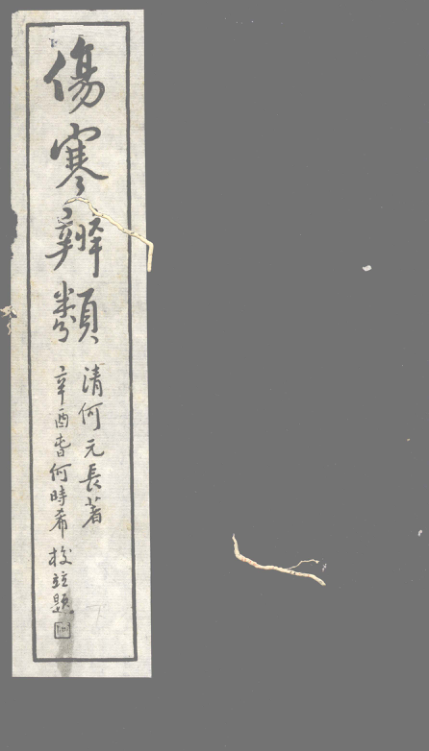 傷寒辨類
清何元長著
辛酉春何時希校並題